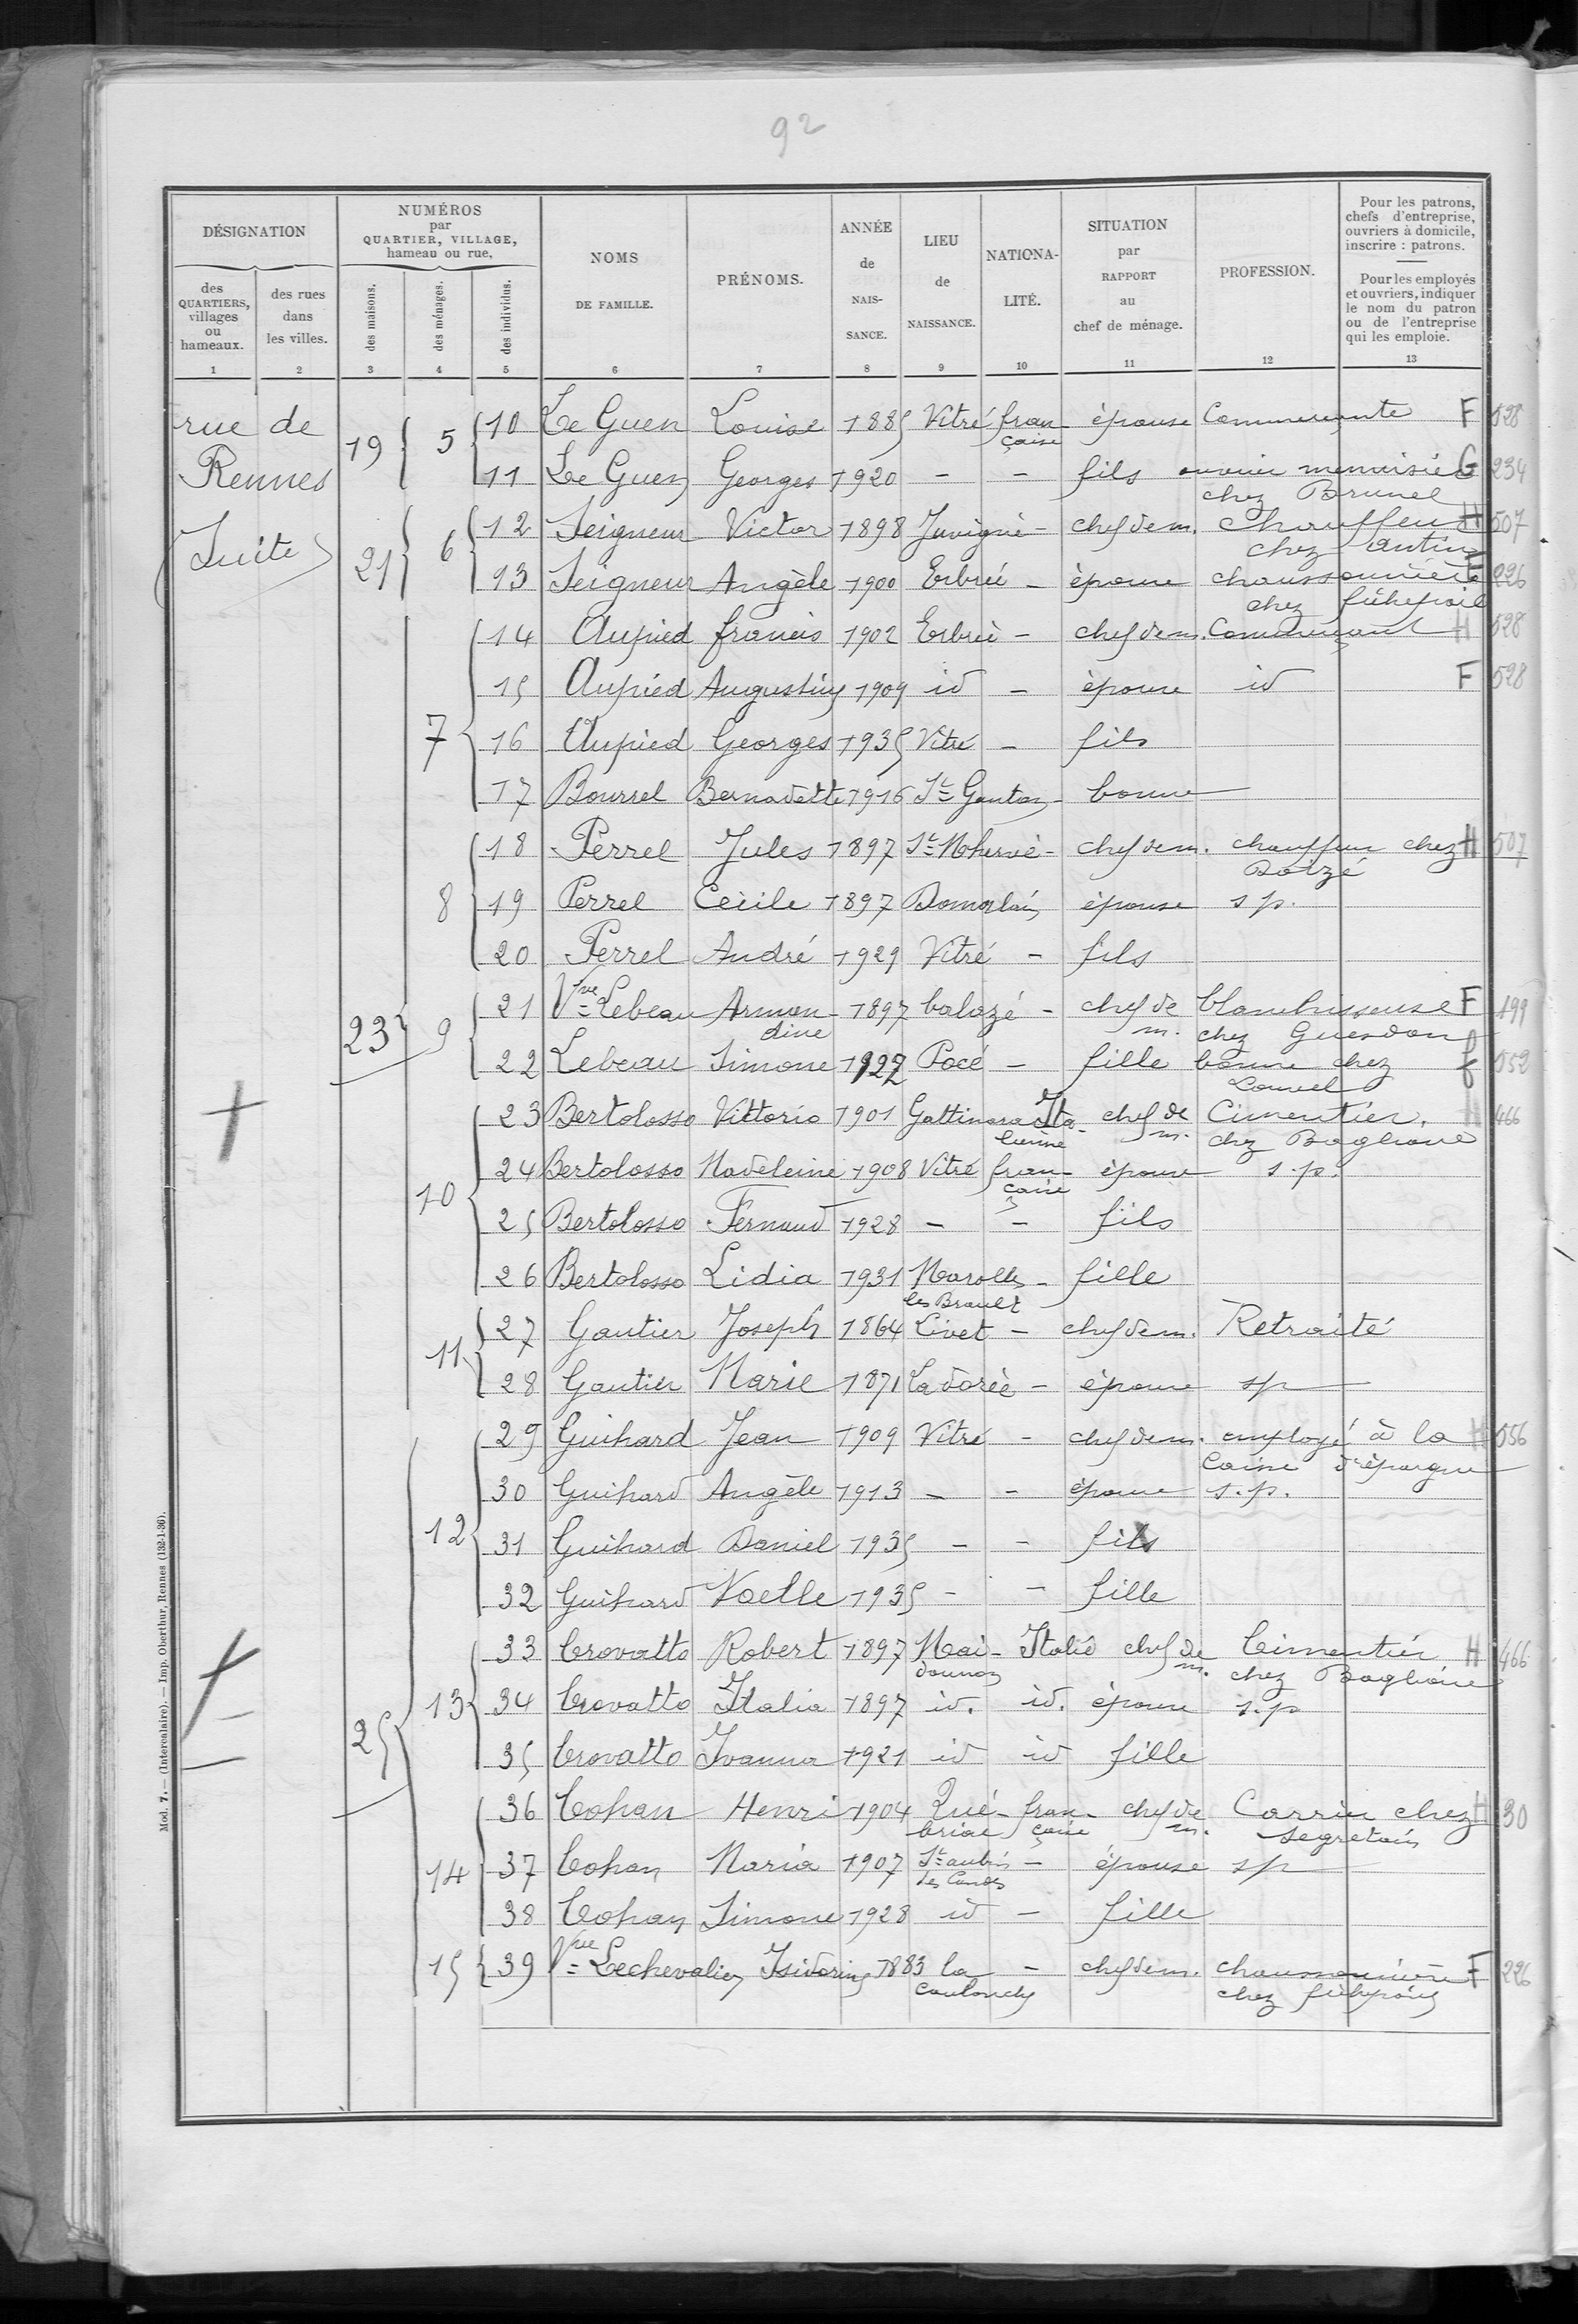 92
DÉSIGNATION
des QUARTIERS, villages ou hameaux.
des rues dans les villes.
NUMÉROS par QUARTIER, VILLAGE, hameau ou rue.
des maisons.
des ménages.
des individus.
NOMS DE FAMILLE.
PRÉNOMS.
ANNÉE de NAISSANCE.
LIEU de NAISSANCE.
NATIONALITÉ.
SITUATION par RAPPORT au chef de ménage.
PROFESSION.
Pour les patrons, chefs d'entreprise, ouvriers à domicile, inscrire : patrons.
Pour les employés et ouvriers, indiquer le nom du patron ou de l'entreprise qui les emploie.
1 2 3 4 5 6 7 8 9 10 11 12 13
rue de Rennes (Suite)
19 5 10 Le Guen Louise 1885 Vitré française épouse Commerçante F 528
11 Le Guen Georges 1920 - - fils ouvrier menuisier chez Brunel G 234
21 6 12 Seigneur Victor 1898 Juvigné - chef de m. Chauffeur chez Antin H 507
13 Seigneur Angèle 1900 Erbrée - épouse chaussonnière chez F 226
7 14 Aupied francis 1902 Erbrée - chef de m. Commerçant H 528
15 Aupied Augustin 1909 id - épouse id F 528
16 Aupied Georges 1935 Vitré - fils
17 Bourrel Bernadette 1916 St Ganton - bonne
23 8 18 Perrel Jules 1897 St M'hervé - chef de m. chauffeur chez Boizé H 507
19 Perrel Cécile 1897 Domalain épouse s p.
20 Perrel André 1929 Vitré - fils
9 21 Vve Lebeau Armandine 1897 balazé - chef de m. blanchisseuse chez Guesdon F 199
22 Lebeau Simone 1922 Pocé - fille bonne chez Louvel f 552
10 23 Bertolosso Vittorio 1901 Gattinara Italienne chef de m. Cimentier chez Baglione H 466
24 Bertolosso Madeleine 1908 Vitré française épouse s.p.
25 Bertolosso Fernand 1928 - - fils
26 Bertolosso Lidia 1931 Marolles les Brault - fille
11 27 Gautier Joseph 1864 Livet - chef de m. Retraité
28 Gautier Marie 1871 La dorée - épouse sp
25 12 29 Guihard Jean 1909 Vitré - chef de m. employé à la Caisse d'épargne H 556
30 Guihard Angèle 1913 - - épouse s.p.
31 Guihard Daniel 1935 - - fils
32 Guihard Noelle 1935 - - fille
13 33 Crovatto Robert 1897 Italie chef de m. Cimentier chez Baglione H 466
34 Crovatto Italia 1897 id. id. épouse s.p
35 Crovatto Ivanna 1921 id id fille
14 36 Cohan Henri 1904 Québriac française chef de m. Carrier chez Segretain H 30
37 Cohan Maria 1907 St aubin des Landes - épouse sp
38 Cohan Simone 1928 id - fille
15 39 Vve Lechevalier Isidorine 1883 la coulonche - chef de m. chaussonnière chez F 226
Mod. 7. — (Intercalaire). — Imp. Oberthur, Rennes (132-1-36).